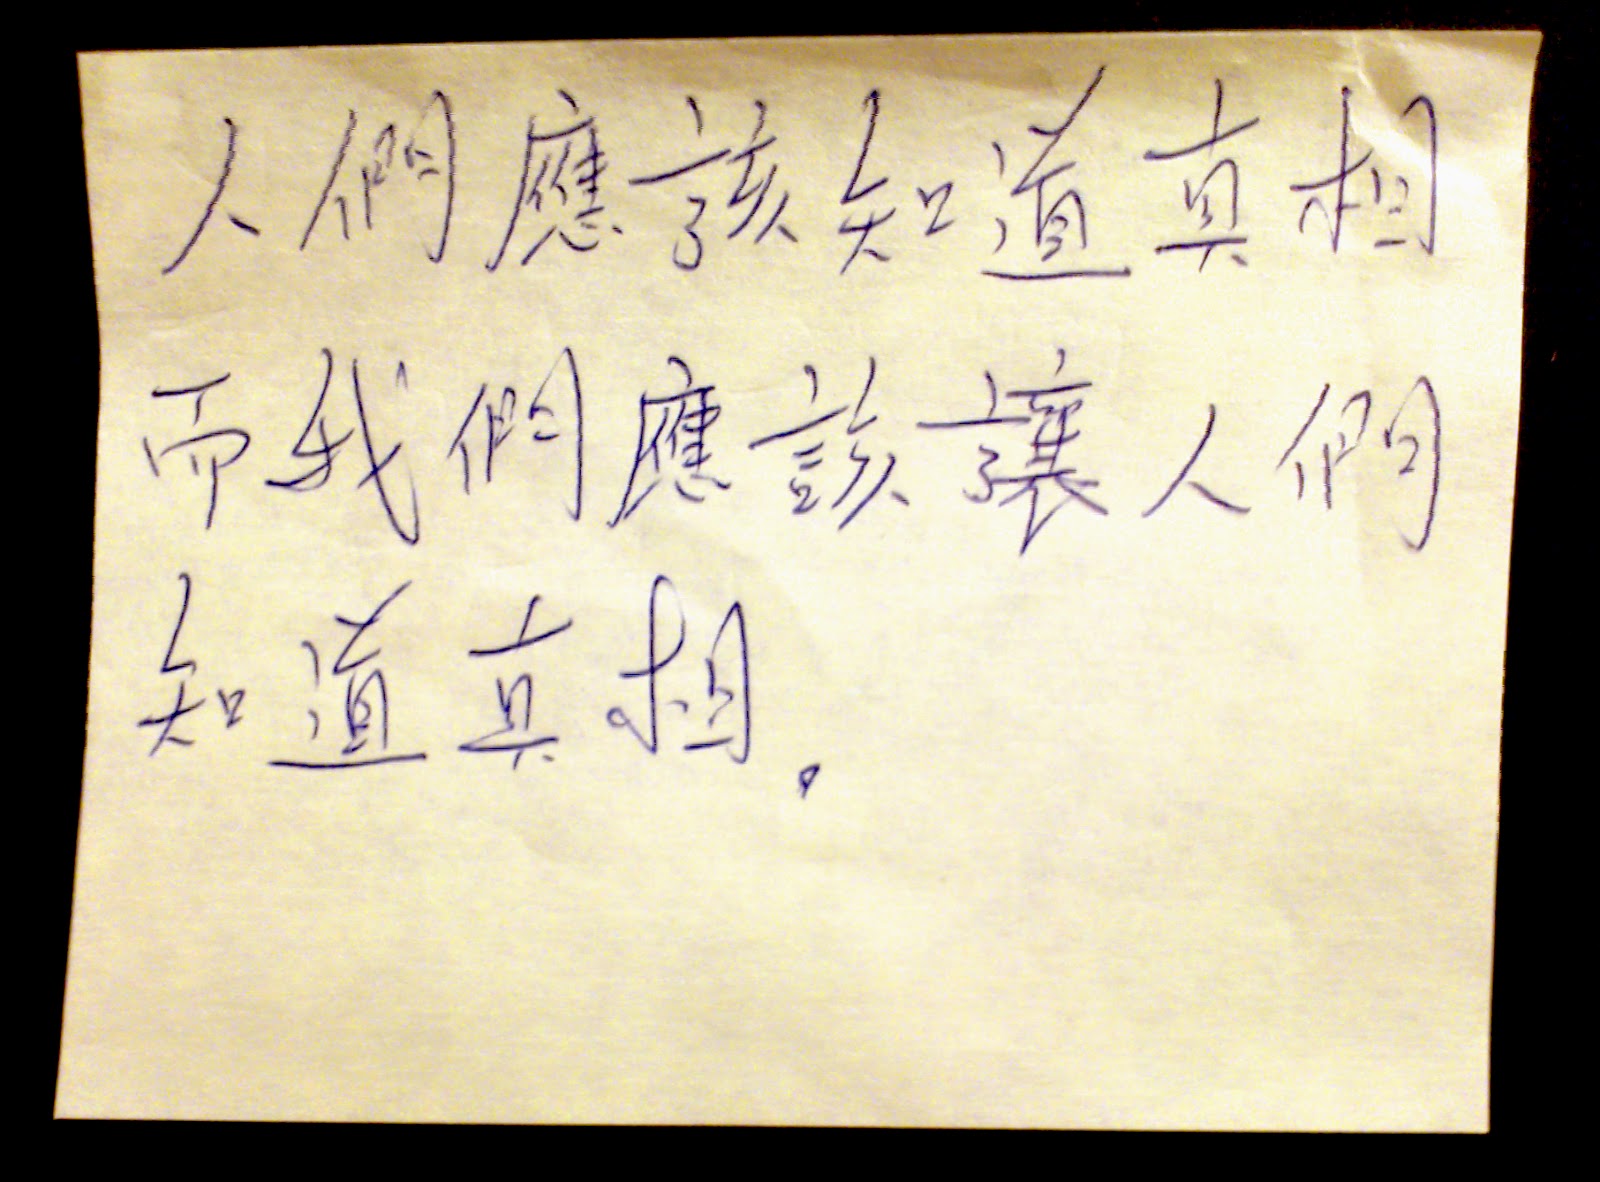 人們應該知道真相
而我們應該讓人們
知道真相.